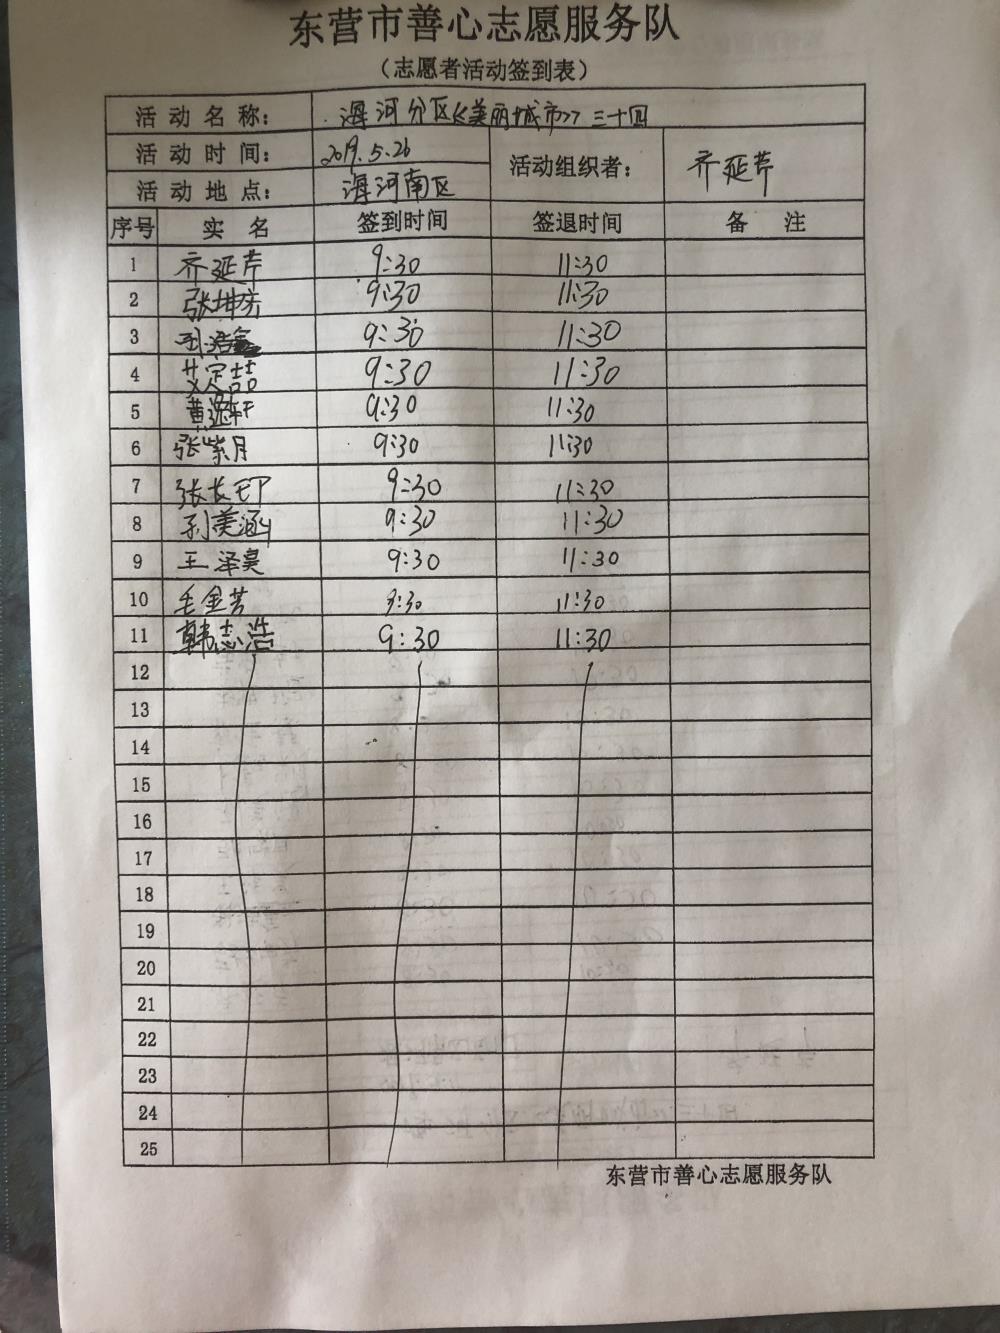 东营市善心志愿服务队
（志愿者活动签到表）
活动名称： 海河分区《美丽城市》三十四
活动时间： 2019.5.26 活动组织者： 齐延芹
活动地点： 海河南区
序号 实名 签到时间 签退时间 备注
1 齐延芹 9:30 11:30
2 张坤芳 9:30 11:30
3 9:30 11:30
4 9:30 11:30
5 黄逸轩 9:30 11:30
6 张紫月 9:30 11:30
7 张长 9:30 11:30
8 孙美涵 9:30 11:30
9 王泽昊 9:30 11:30
10 毛金芳 9:30 11:30
11 韩志浩 9:30 11:30
12
13
14
15
16
17
18
19
20
21
22
23
24
25
东营市善心志愿服务队